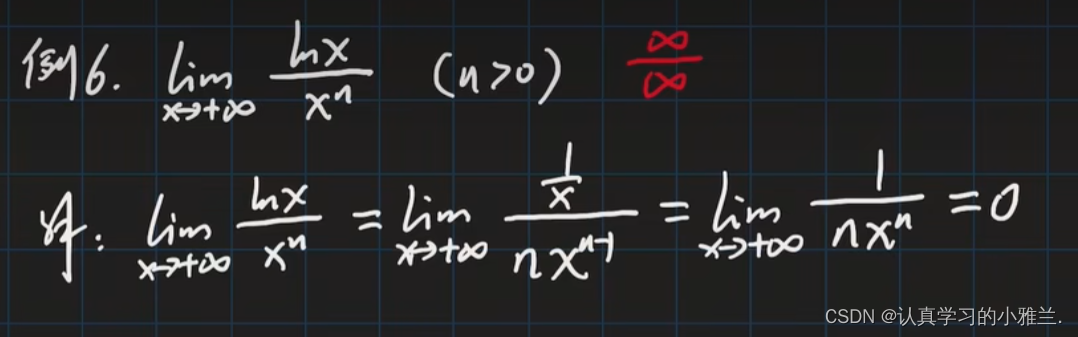 例6. lim x→+∞ lnx/xⁿ (n>0) ∞/∞
解: lim x→+∞ lnx/xⁿ = lim x→+∞ (1/x)/(nxⁿ⁻¹) = lim x→+∞ 1/(nxⁿ) = 0
CSDN @认真学习的小雅兰.